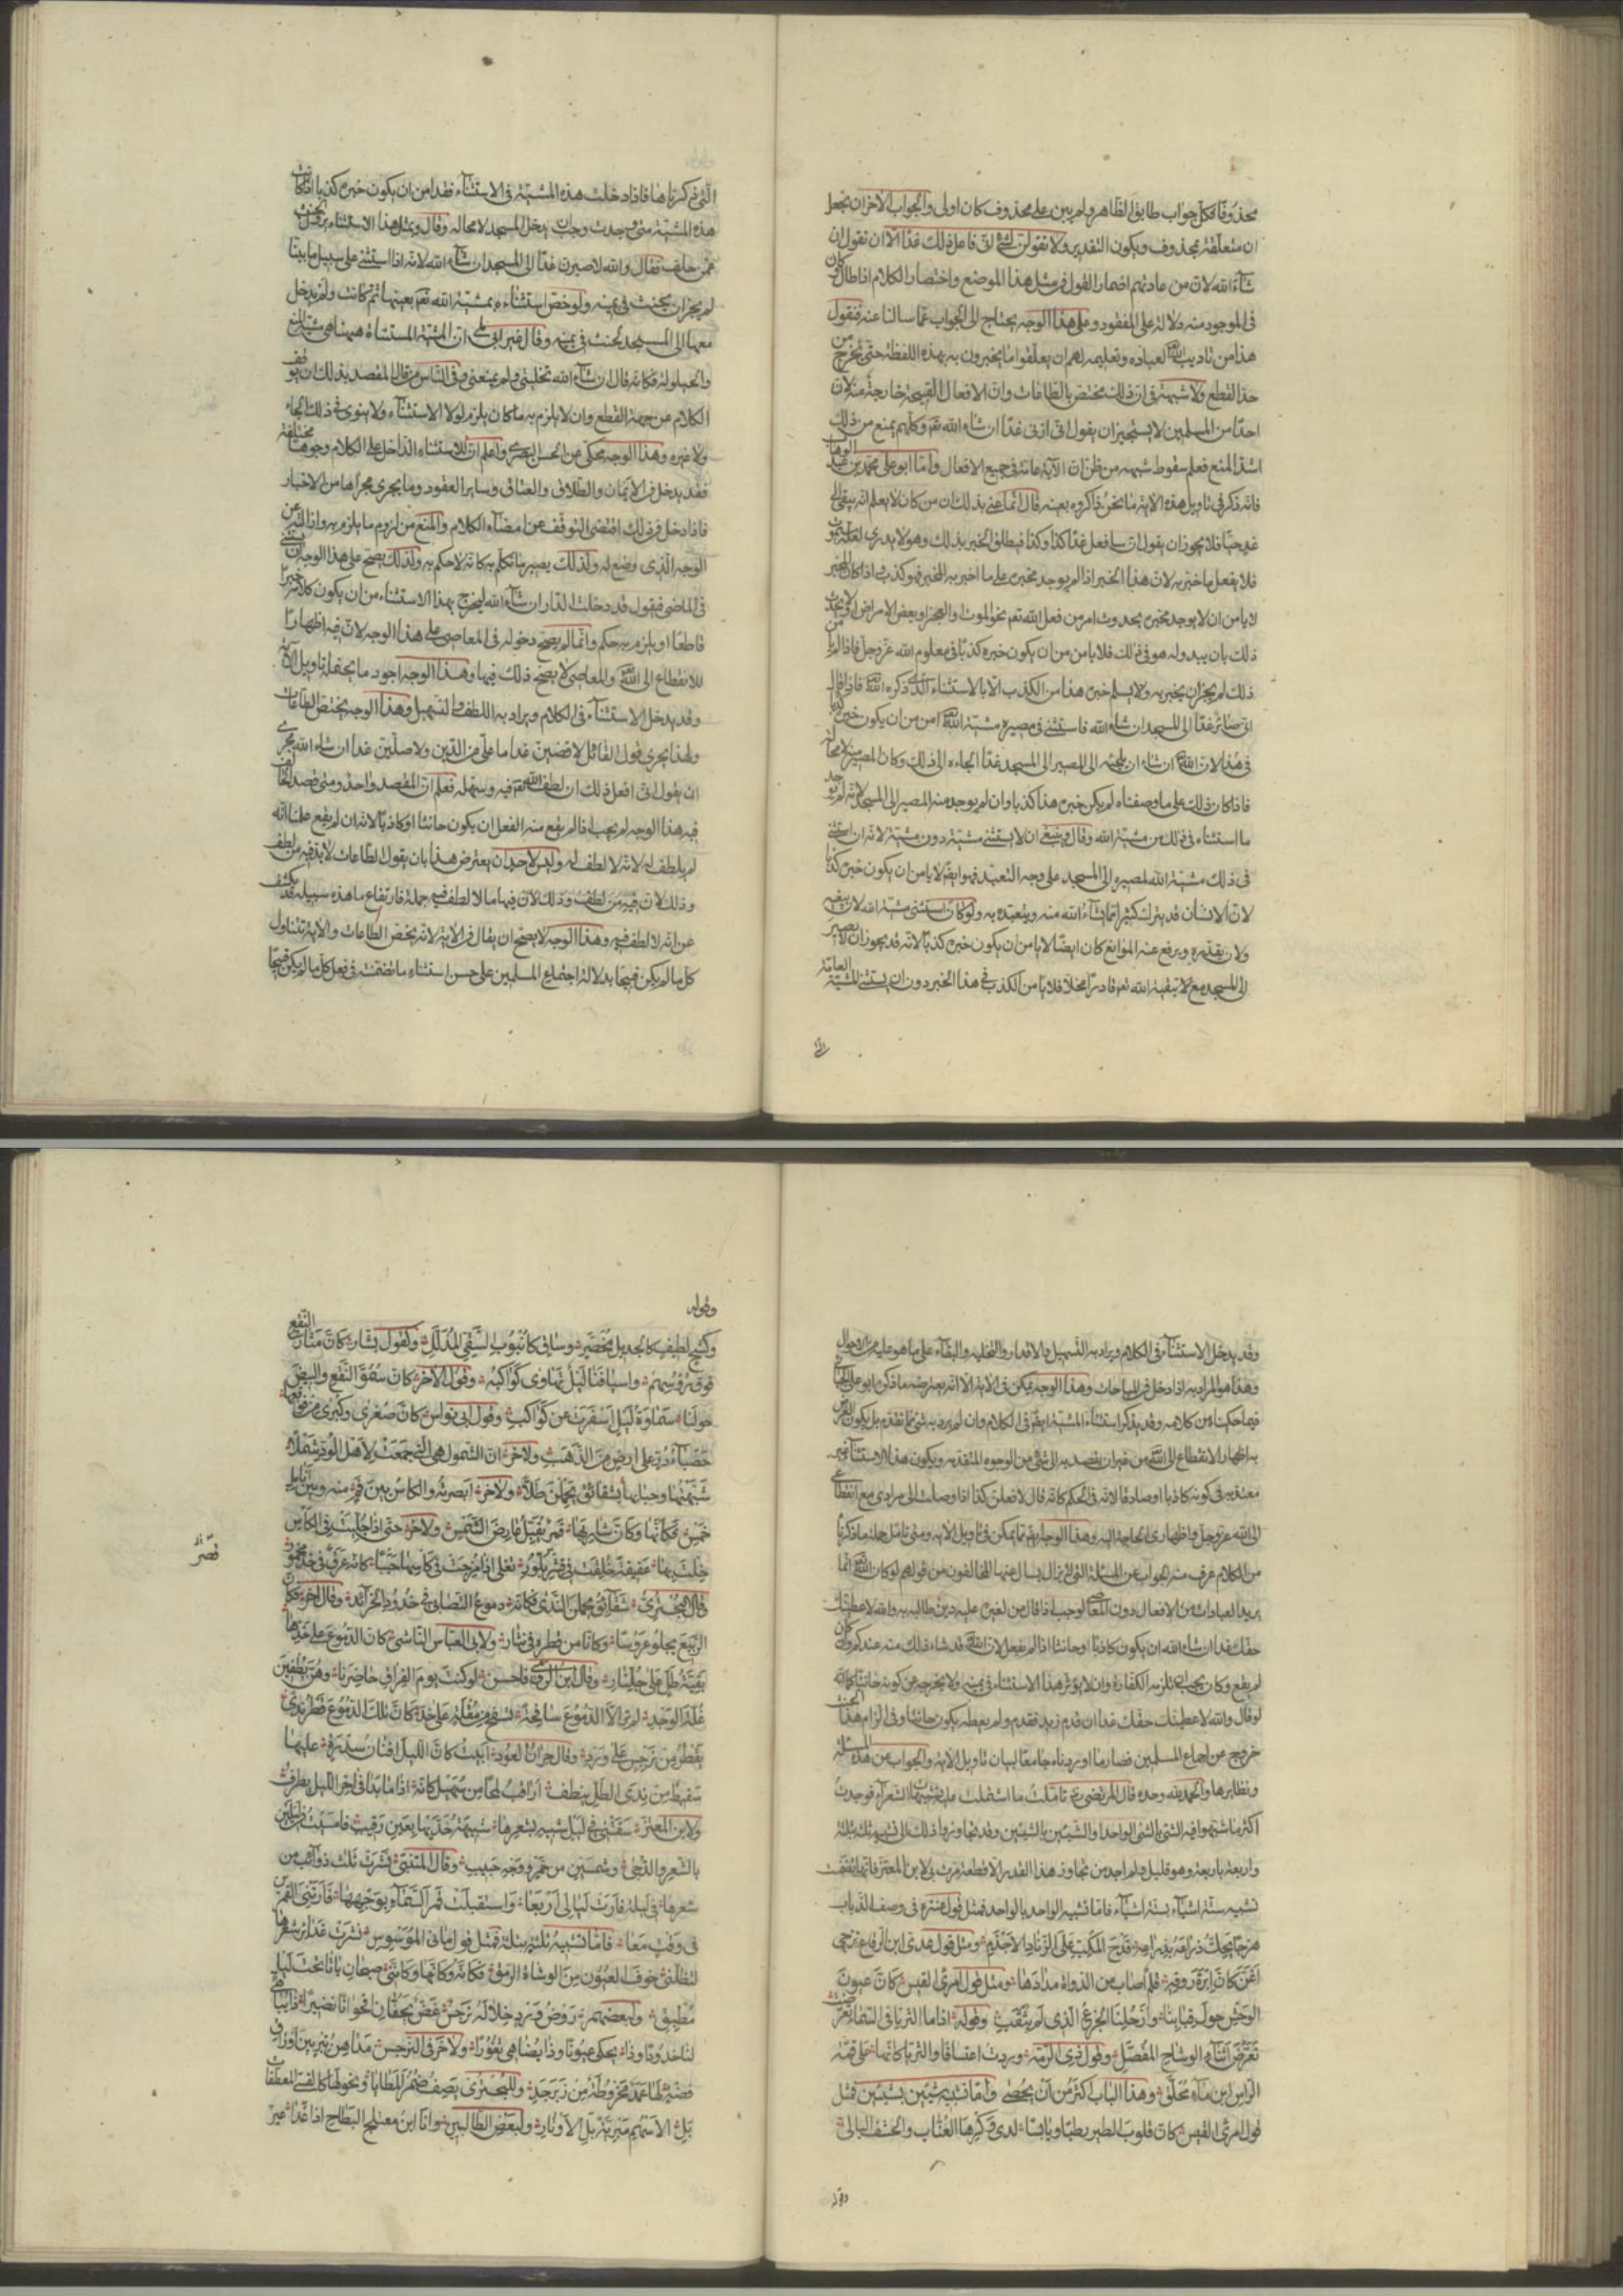 محذوفا فكل جواب طابق الظاهر ولم يبن على محذوف كان اولى والجواب الاخر ان نجعل
ان متعلقة بمحذوف ويكون التقدير ولا تقولن لشئ انى فاعل ذلك غدا الا ان تقول ان
شآء الله لان من عادتهم اضمار القول فى مثل هذا الموضع واختصار الكلام اذا طال وكان
فى الموجود منه دلالة على المفقود وعلى هذا الوجه يحتاج الى الجواب عما سالنا عنه فنقول
هذا من تاديب الله لعباده وتعليمه لهم ان يعلقوا ما يخبرون به بهذه اللفظة حتى يخرج من
حد القطع ولا شبهة فى ان ذلك مختص بالطاعات وان الافعال القبيحة خارجة منه لان
احدا من المسلمين لا يستجيز ان يقول انى ازنى غدا ان شاء الله تعم وكلهم يمنع من ذلك
اشد المنع فعلم سقوط شبهة من ظن ان الاية عامة فى جميع الافعال واما ابو على محمد بن عبد الوهاب
فانه ذكر فى تاويل هذه الاية ما نحن ذاكروه بعينه قال انما عنى بذلك ان من كان لا يعلم انه يبقى الى
غد حيا فلا يجوز ان يقول انى سافعل غدا كذا وكذا فيطلق الخبر بذلك وهو لا يدرى لعله سيموت
فلا يفعل ما خبر به لان هذا الخبر اذا لم يوجد مخبره على ما اخبر به المخبر فهو كذب واذا كان المخبر
لا يامن ان لا يوجد مخبره بحدوث امر من فعل الله تعم نحو الموت والعجز او بعض الامراض او لا يحدث
ذلك بان يبدو له هو فى ذلك فلا يامن من ان يكون خبره كذبا فى معلوم الله عز وجل فاذا لم يامن
ذلك لم يجز ان يخبر به ولا يسلم خبره هذا من الكذب الا بالاستثناء الذى ذكره الله فاذا قال
انى صائر غدا الى المسجد ان شاء الله فاستثنى فى مصيره مشية الله امن من ان يكون خبره كذبا
فى هذا لان الله ان شاء ان يلجئه الى المصير الى المسجد غدا الجاءه الى ذلك وكان المصير منه لا محالة
فاذا كان ذلك على ما وصفناه لم يكن خبره هذا كذبا وان لم يوجد منه المصير الى المسجد لانه لم يوجد
ما استثناه فى ذلك من مشية الله وقال وينبغى ان لا يستثنى مشية دون مشية لانه ان استثنى
فى ذلك مشية الله لمصيره الى المسجد على وجه التعبد فهو ايضا لا يامن ان يكون خبره كذبا
لان الانسان قد يترك كثيرا مما يشاء الله منه ويتعبده به ولو كان استثنى مشية الله لان يبقيه
ولان يقدره ويرفع عنه الموانع كان ايضا لا يامن ان يكون خبره كذبا لانه قد يجوز ان لا يصير
الى المسجد مع لا تبقية الله تعم قادرا مخلا فلا يامن الكذب فى هذا الخبر دون ان يستثنى المشية العامة
التى
التى ذكرناها فاذا دخلت هذه المشية فى الاستثناء فقد امن ان يكون خبره كذبا اذا كانت
هذه المشية متى وجدت وجب ان يدخل المسجد لا محاله وقال وبمثل هذا الاستثناء يزول الحنث
عمن حلف فقال والله لاصيرن غدا الى المسجد ان شآء الله لانه اذا استثنى على سبيل ما بينا
لم يجز ان يحنث فى يمينه ولو خص استثناءه بمشية الله تعم بعينها ثم كانت ولم يدخل
معها الى المسجد لحنث فى يمينه وقال غير ابى على ان المشية المستثناة ههنا هى مشية المنع
والحيلولة فكانه قال ان شآء الله تخليتى ولم يمنعنى وفى الناس من قال المقصد بذلك ان يوقف
الكلام عن جهة القطع وان لا يلزم به ما كان يلزم لولا الاستثناء ولا ينوى فى ذلك الجاء
ولا غيره وهذا الوجه محكى عن الحسن البصرى واعلم ان للاستثناء الداخل على الكلام وجوها مختلفة
فقد يدخل فى الايمان والطلاق والعتاق وساير العقود وما يجرى مجراها من الاخبار
فاذا دخل فى ذلك اقتضى التوقف عن امضاء الكلام والمنع من لزوم ما يلزم به وازاله عن
الوجه الذى وضع له ولذلك يصير ما تكلم به كانه لا حكم به ولذلك يصح على هذا الوجه ان يستثنى
فى الماضى فيقول قد دخلت الدار ان شآء الله ليخرج بهذا الاستثناء من ان يكون كلامه خبرا
قاطعا او يلزم به حكم وانما لم يصح دخوله فى المعاصى على هذا الوجه لان فيه اظهارا
للانقطاع الى الله والمعاصى لا يصح ذلك فيها وهذا الوجه اجود ما يحتمله تاويل الاية
وقد يدخل الاستثناء فى الكلام ويراد به اللطف والتسهيل وهذا الوجه يختص الطاعات
ولهذا يجرى قول القائل لاقضين غدا ما على من الدين ولاصلين غدا ان شاء الله مجرى
ان يقول انى افعل ذلك ان لطف الله تعم فيه وسهله فعلم ان المقصد واحد ومتى قصد الحالف
فيه هذا الوجه لم يجب اذا لم يقع منه الفعل ان يكون حانثا او كاذبا لانه ان لم يقع علمنا انه
لم يلطف له لانه لا لطف له وليس لاحد ان يعترض هذا بان يقول الطاعات لا بد فيه من لطف
وذلك لان فيه من لطف وذلك لان فيها ما لا لطف فيه جملة فارتفاع ما هذه سبيله قد يكشف
عن انه لا لطف فيه وهذا الوجه لا يصح ان يقال فى الاية لانه يخص الطاعات والاية تتناول
كل ما لم يكن قبيحا بدلالة اجتماع المسلمين على حسن استثناء ما تضمنته فى فعل كل ما لم يكن قبيحا
وقد يدخل الاستثناء فى الكلام ويراد به التسهيل والاقدار والتخلية والبقاء على ما هو عليه من الاحوال
وهذا هو المراد به اذا دخل فى المباحات وهذا الوجه يمكن فى الاية الا انه يعترضه ما ذكره ابو على الجبائى
فيما حكيناه من كلامه وقد يذكر استثناء المشية ايضا فى الكلام وان لم يرد به شئ مما تقدم بل يكون الغرض
به اظهار الانقطاع الى الله من غير ان يقصد به الى شئ من الوجوه المتقدمه ويكون هذا الاستثناء غير
معتد به فى كونه كاذبا او صادقا لانه فى الحكم كانه قال لافعلن كذا اذا وصلت الى مرادى مع انقطاعى
الى الله عز وجل واظهارى الحاجة اليه وهذا الوجه ايضا مما يمكن فى تاويل الاية ومتى تامل جملة ما ذكرناه
من الكلام عرف منه الجواب عن المسئلة التى لا يزال يسال عنها المخالفون من قولهم لو كان الله انما
يريد العبادات من الافعال دون المعاصى لوجب اذا قال من لغيره عليه دين طالبه به والله لاعطينك
حقك غدا ان شاء الله ان يكون كاذبا او حانثا اذا لم يفعل لان الله قد شاء ذلك منه عندكم وان كان
لم يقع وكان يجب ان تلزمه الكفارة وان لا يؤثر هذا الاستثناء فى يمينه ولا يخرجه من كونه حانثا كما انه
لو قال والله لاعطينك حقك غدا ان قدم زيد فقدم ولم يعطه يكون حانثا وفى الزام هذا الحنث
خروج عن اجماع المسلمين فصار ما اوردناه جامعا لبيان تاويل الاية والجواب عن هذه المسئلة
ونظايرها والحمد لله وحده قال المرتضى رض تاملت ما اشتملت عليه تشبيهات الشعرآء فوجدت
اكثر ما شبهوا فيه الشئ بالشئ الواحد او الشيئين بالشيئين وقد تجاوزوا ذلك الى تشبيه ثلثة بثلثة
واربعة باربعة وهو قليل ولم اجد من تجاوز هذا القدر الا قطعة مرت بى لابن المعتز فانها تضمنت
تشبيه ستة اشياء بستة اشيآء فاما تشبيه الواحد بالواحد فمثل قول عنترة فى وصف الذباب
هزجا يحك ذراعه بذراعه قدح المكب على الزناد الاجذم ومثل قول عدى ابن الرقاع تزجى
اغن كان ابرة روقه قلم اصاب من الدواة مدادها ومثل قول امرئ القيس كان عيون
الوحش حول قبابنا وارحلنا الجزع الذى لم يثقب وقوله اذا ما الثريا فى السماء تعرضت
تعرض اثناء الوشاح المفصل وقول ذى الرمة وردت اعتسافا والثريا كانها على قمة
الراس ابن مآء محلق وهذا الباب اكثر من ان يحصى واما تشبيه شيئين بشيئين فمثل
قول امرئ القيس كان قلوب الطير رطبا ويابسا لدى وكرها العناب والحشف البالى
وقوله
وقوله
وكشح لطيف كالجديل مخصر وساق كانبوب السقى المذلل وكقول بشار كان مثار النقع
فوق رؤسهم واسيافنا ليل تهاوى كواكبه وقول الاخر كان سمو النقع والبيض
حولنا سماوة ليل اسفرت عن كواكب وقول ابى نواس كان صغرى وكبرى من فواقعها
حصباء در على ارض من الذهب ولاخر ان الشمول هى التى جمعت لاهل الود شملا
شبهتها وحبابها بشقائق يحملن طلا ولاخر ابصرته والكاس بين فم منه وبين انامل
خمس فكانها وكان شاربها قمر يقبل عارض الشمس ولاخر حتى اذا جليت فى الكاس
خلت بها عقيقة خلقت فى قشر بلور تعلى اذا مزجت فى كاسها حببا كانه عرق فى خد مخمور
وقال البحترى شقائق يحملن الندى فكانه دموع التصابى فى خدود الخرائد وقال اخر فكان
الربيع يجلو عروسا وكانا من قطره فى نثار ولابى العباس الناشى كان الدموع على خدها
بقية طل على جلنار وقال ابن الرومى فاحسن لو كنت يوم الفراق حاضرنا وهن يطفين
غلة الوجد لم تر الا الدموع سافحة تسفح من مقلة على خد كان تلك الدموع قطر ندى
يقطر من نرجس على ورد وقال جران العود ابيت كان الليل افنان سدرة عليها
سقيط من ندى الطل ينطف اراقب لمحا من سهيل كانه اذا ما بدا فى اخر الليل يطرف
ولابن المعتز سقتنى فى ليل شبيه بشعرها شبيهة خديها بعين رقيب فامسيت فى ليلين
بالشعر والدجى وشمسين من خمر ووجه حبيب وقال المتنبى نشرت ثلث ذوآئب من
شعرها فى ليلة فارت ليالى اربعا واستقبلت قمر السمآء بوجهها فارتنى القمرين
فى وقت معا فاما تشبيه ثلثة بثلثة فمثل قول مانى الموسوس نشرت غدائر شعرها
لتظلنى خوف العيون من الوشاة الرمق فكانه وكانها وكاننى صبحان باتا تحت ليل
مطبق ولبعضهم روض ورد خلاله نرجس غض يحفان اقحوانا نضيرا ذا يباهى
لنا خدودا وذا يحكى عيونا وذا يضاهى ثغورا ولاخر فى النرجس مداهن تبر بين اوراق
فضة لها عمد مخروطة من زبرجد وللبحترى يصف ضمر المطايا ونحولها كالقسى المعطفات
بل الاسهم مبرية بل الاوتار ولبعض الطالبيين وانا ابن معتلج البطاح اذا غدا غير